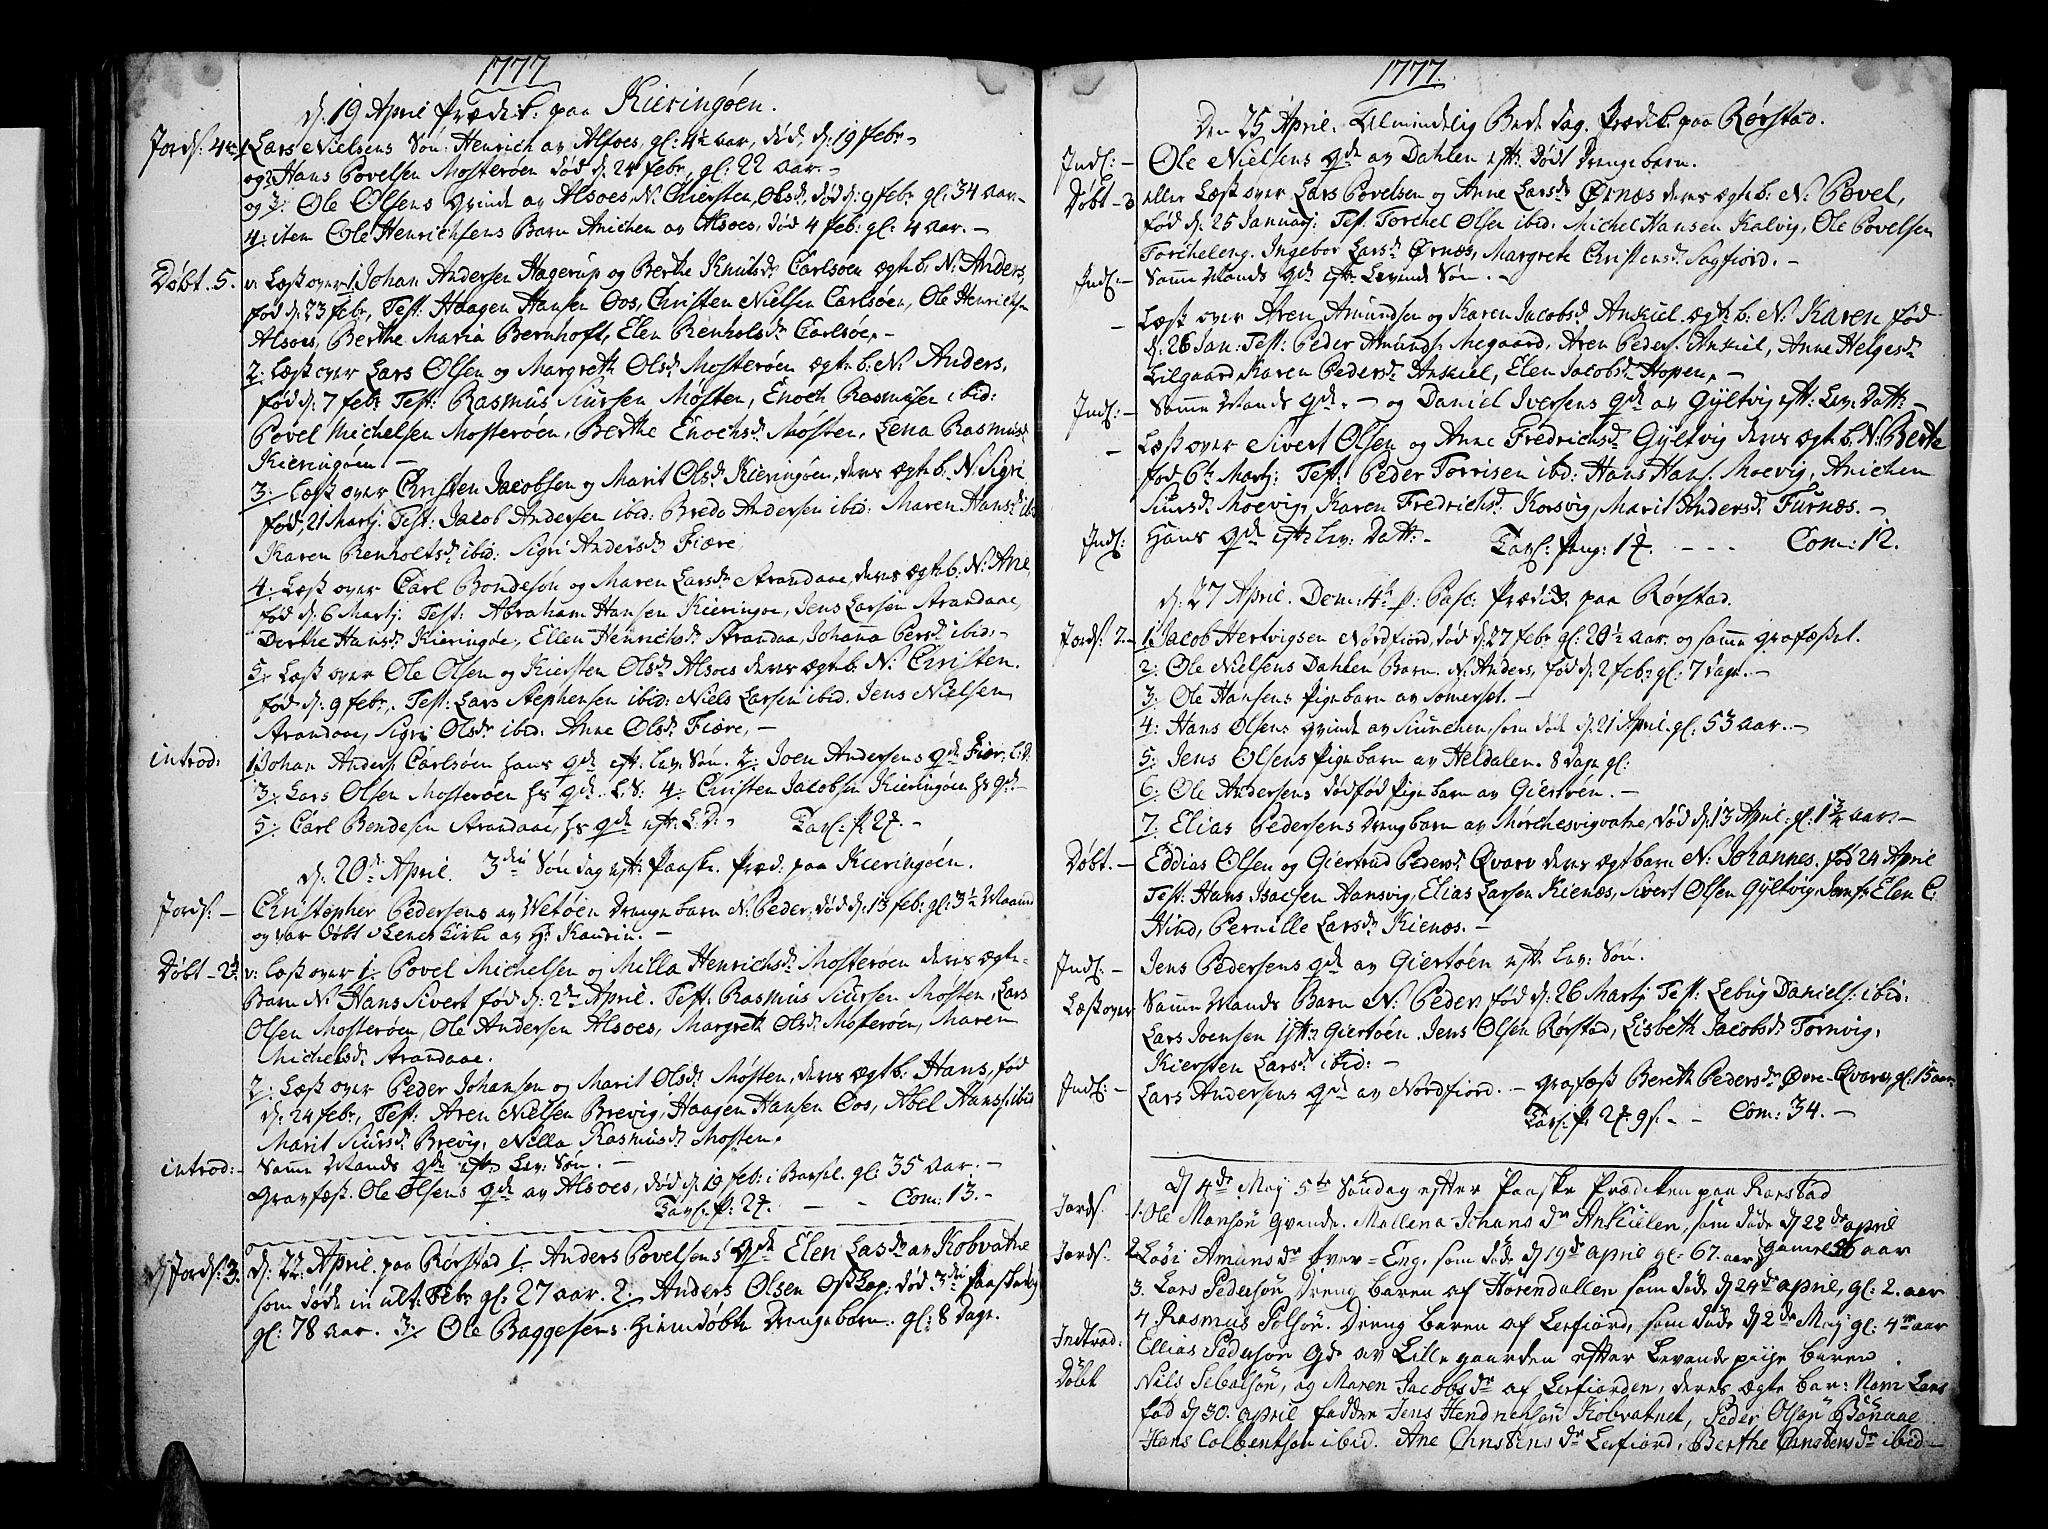 1777
d. 19 April Prædik: paa Kieringøen.
Jords: 4re 1. Lars Nielsens Søn: Henrich av Alsoes, gl: 4½ aar, død, d: 19 febr.
og 2 Hans Povelsen Mosterøen død d: 24 febr, gl: 22 aar.
og 3: Ole Olsens qvinde av Alsoes, N: Chiersten, Olsd., død d: 9 febr gl: 34 Aar.
4: item Ole Henrichsens Barn Anichen av Alsoes, død 4 feb: gl: 4 aar.
Døbt. 5. v: Læst over 1. Johan Andersen Hagerup og Berthe Knutsd. Carlsøen ægte b. N: Anders,
fød d: 23 febr, Test: Haagen Hansen Oos, Christen Nielsen Carlsøen, Ole Henrichsen
Alsoes, Berthe Maria Bernhoft, Elen Renholsd. Carlsøe.
2: Læst over Lars Olsen og Margreth Olsd. Mosterøen ægte b: N: Anders,
fød d: 7 febr Test: Rasmus Siursen Møsten, Enoch Rasmusen ibid:
Povel Michelsen Mosterøen, Berthe Enochsd. Møsten, Lena Rasmusd.
Kieringøen.
3: Læst over Christen Jacobsen og Marit Olsd. Kieringøen, deres ægte b. N: Sigri
fød, 21 Martj. Test: Jacob Andersen ibid: Bredo Andersen ibid: Maren Hansd. ibid
Karen Renholtsd. ibid: Sigri Andersd. Fiære,
4: Læst over Carl Bondesøn og Maren Larsd. Strandaae, deres ægte b. N: Ane,
fød d: 6 Martj. Test: Abraham Hansen Kieringøe, Jens Larsen Strandaae,
Berthe Hansd. Kieringøe, Ellen Henrichsd. Strandaa, Johana Persd. ibid:
5: Læst over Ole Olsen og Kiersten Olsd. Alsoes deres ægte b. N: Christen.
fød d: 9 febr, Test: Lars Stephensen ibid: Niels Larsen ibid. Jens Nielsen
Strandaae, Sigri Olsd. ibid: Anne Olsd. Fiære,
introd: 1. Johan Anders: Carlsøen hans qde eft: Lev: Søn. 2: Joen Andersens qde Fiær. L:D.
3: Lars Olsen Mosterøen hs qde. L:S: 4: Christen Jacobsen Kieringøen hs qde.
5: Carl Bendesen Strandaae, hs qde eft: L:D. Tavl: p: 27.
d: 20de April. 3die Søndag eft: Paaske. Præd: paa Kieringøen.
Jords: Christopher Pedersens av Wetøen Drengebarn N: Peder, død d: 13 feb: gl: 3½ Maaned
og var døbt i Lenes Kirke av Hr Kaurin.
Døbt 2de v: læst over 1: Povel Michelsen og Milla Henrichsd. Mosterøen deres ægte
Barn N: Hans Sivert fød d: 2de April. Test: Rasmus Siursen Møsten, Lars
Olsen Mosterøen, Ole Andersen Alsoes, Margreth Olsd. Mosterøen, Maren
Michelsd. Strandaae.
2: Læst over Peder Johansen og Marit Olsd. Møsten, deres ægte b: Hans, fød
d: 24 febr, Test: Aren Nielsen Brevig, Haagen Hansen Oos, Abel Hanss: ibid
Marit Siursd. Brevig, Nilla Rasmusd. Møsten.
introd: Samme Mands qde eft: Lev: Søn.
Gravfæst. Ole Olsens qde av Alsoes, død d: 19 feb: i Barsel. gl: 35 Aar.
Tavl: p: 27. Com: 13.
d: Jords: 3. d: 22: April. paa Rørstad 1. Anders Povelsens qde Elen Lasd. av Kobvatne
som døde in ult: Febr gl: 27 aar. 2: Anders Olsen død 3die Paaskedag
gl: 78 aar. 3: Ole Baggesens Hiemdøbte Drengebarn. gl: 8 dage.
1777.
Den 25 April. Almindelig Bededag. Prædik. paa Rørstad.
Indl: Ole Nielsens qde av Dahlen eft: Dødt Drengebarn.
Døbt 3 eller Læst over Lars Povelsen og Anne Larsd. Ørnæs deres ægte b: N: Povel,
fød d: 25 Januarj: Test: Torchel Olsen ibid: Michel Hansen Kalvig, Ole Povelsen
Torcheleng, Ingebor Larsd. Ørnæs, Margrete Christensd. Sagfiord.
Indl: Samme Mands qde eft: Levende Søn.
Læst over Aren Amundsen og Karen Jacobsd. Ankiel ægte b: N: Karen fød
d: 26 Jan: Test: Peder Amunds: Megaard, Aren Peders: Ankiel, Anne Helgesd.
Lilgaard, Karen Pedersd. Ankiel, Elen Jacobsd. Hopen,
Indl: Samme Mands qde. og Daniel Iversens qde av Gyltvig eft: Lev: Datt:
Læst over Sivert Olsen og Anne Fredrichsd. Gyltvig deres ægte b. N: Berte
fød 6te Martj: Test: Peder Torrisen ibid: Hans Hans: Moevig, Anichen
Siursd. Moevig, Karen Fredrichsd. Korsvig, Marit Andersd. Furnæs.
Indl: Hans qde eft: Lev: Datt: Tavl: Peng: 17. Com: 12.
d: 27 April. Dom: 4ta p: Pasc: Prædik. paa Rørstad.
Jords: 7. 1. Jacob Hertvigsen Nordfiord, død d: 27 febr gl: 20½ aar. og samme gravfæstet.
2: Ole Nielsens Dahlen Barn N: Anders, fød d: 2 feb: gl: 7 dage.
3: Ole Hansens Pigebarn av Somerset.
4: Hans Olsens qvinde av Siunchen, som døde d: 21 April. gl: 53 aar.
5: Jens Olsens Pigebarn av Heldalen. 8 dage gl:
6: Ole Andersens dødfød Pigebarn av Giertøen.
7: Elias Pedersens Drengbarn av Mørchesvigvatne, død d: 13 April: gl: 1¾ aar.
Døbt. Eddias Olsen og Giertrud Pedersd. Qvarv deres ægtbarn N: Johannes. fød 24 April
Test: Hans Isacsen Hansvig, Elias Larsen Kienæs, Sivert Olsen Gyltvig, Jomfr Elen C:
Hind, Pernille Larsd. Kienæs.
Indl: Jens Pedersens qde av Giertøen eft: Lev: Søn.
Læst over Samme Mands Barn N: Peder, fød d: 26 Martj Test: Lebug Daniels: ibid:
Lars Joensen Ytter Giertøen. Jens Olsen Rørstad, Lisbeth Jacobsd. Tørnvig,
Kiersten Larsd. ibid:
Indl: Lars Andersens qde av Nordfiord. Gravfæst Bereth Pedersd. Øvre-Qvarv, gl: 15 aar
Tavl: p: 27. 9s. Com: 34.
D 4de Maj 5te Søndag efter Paaske Prædiken paa Rørstad
Jords. 1. Ole Monsøn qvende. Mallena Johansdr Ankielen, som døde d 22de april
Jords: 2. Losi Amunsdr Øver=Eng. som døde d 19de april gl: 67. aar gamel 56 aar
3. Lars Pedersøn Dreng baren af Horendallen som døde d 24de april, gl: 2. aar
4 Rasmus Polsøn. Dreng baren af Lerfiord, som døde d 2de Maj gl: 4re aar
Introd: Ellias Pedersøn qde av Lille gaarden efter Levende piige baren.
Døbt Niels Sibalsøn, og Maren Jacobsdr af Lerfiorden, deres ægte bar: Nam Lars
fød d 30. april fadder Jens Hendrichsøn Kobvatnet, Peder Olsøn Bønaae
Hans Colbentsøn ibid. Ane Christensdr Lerfiord, Berthe Christensdr ibid